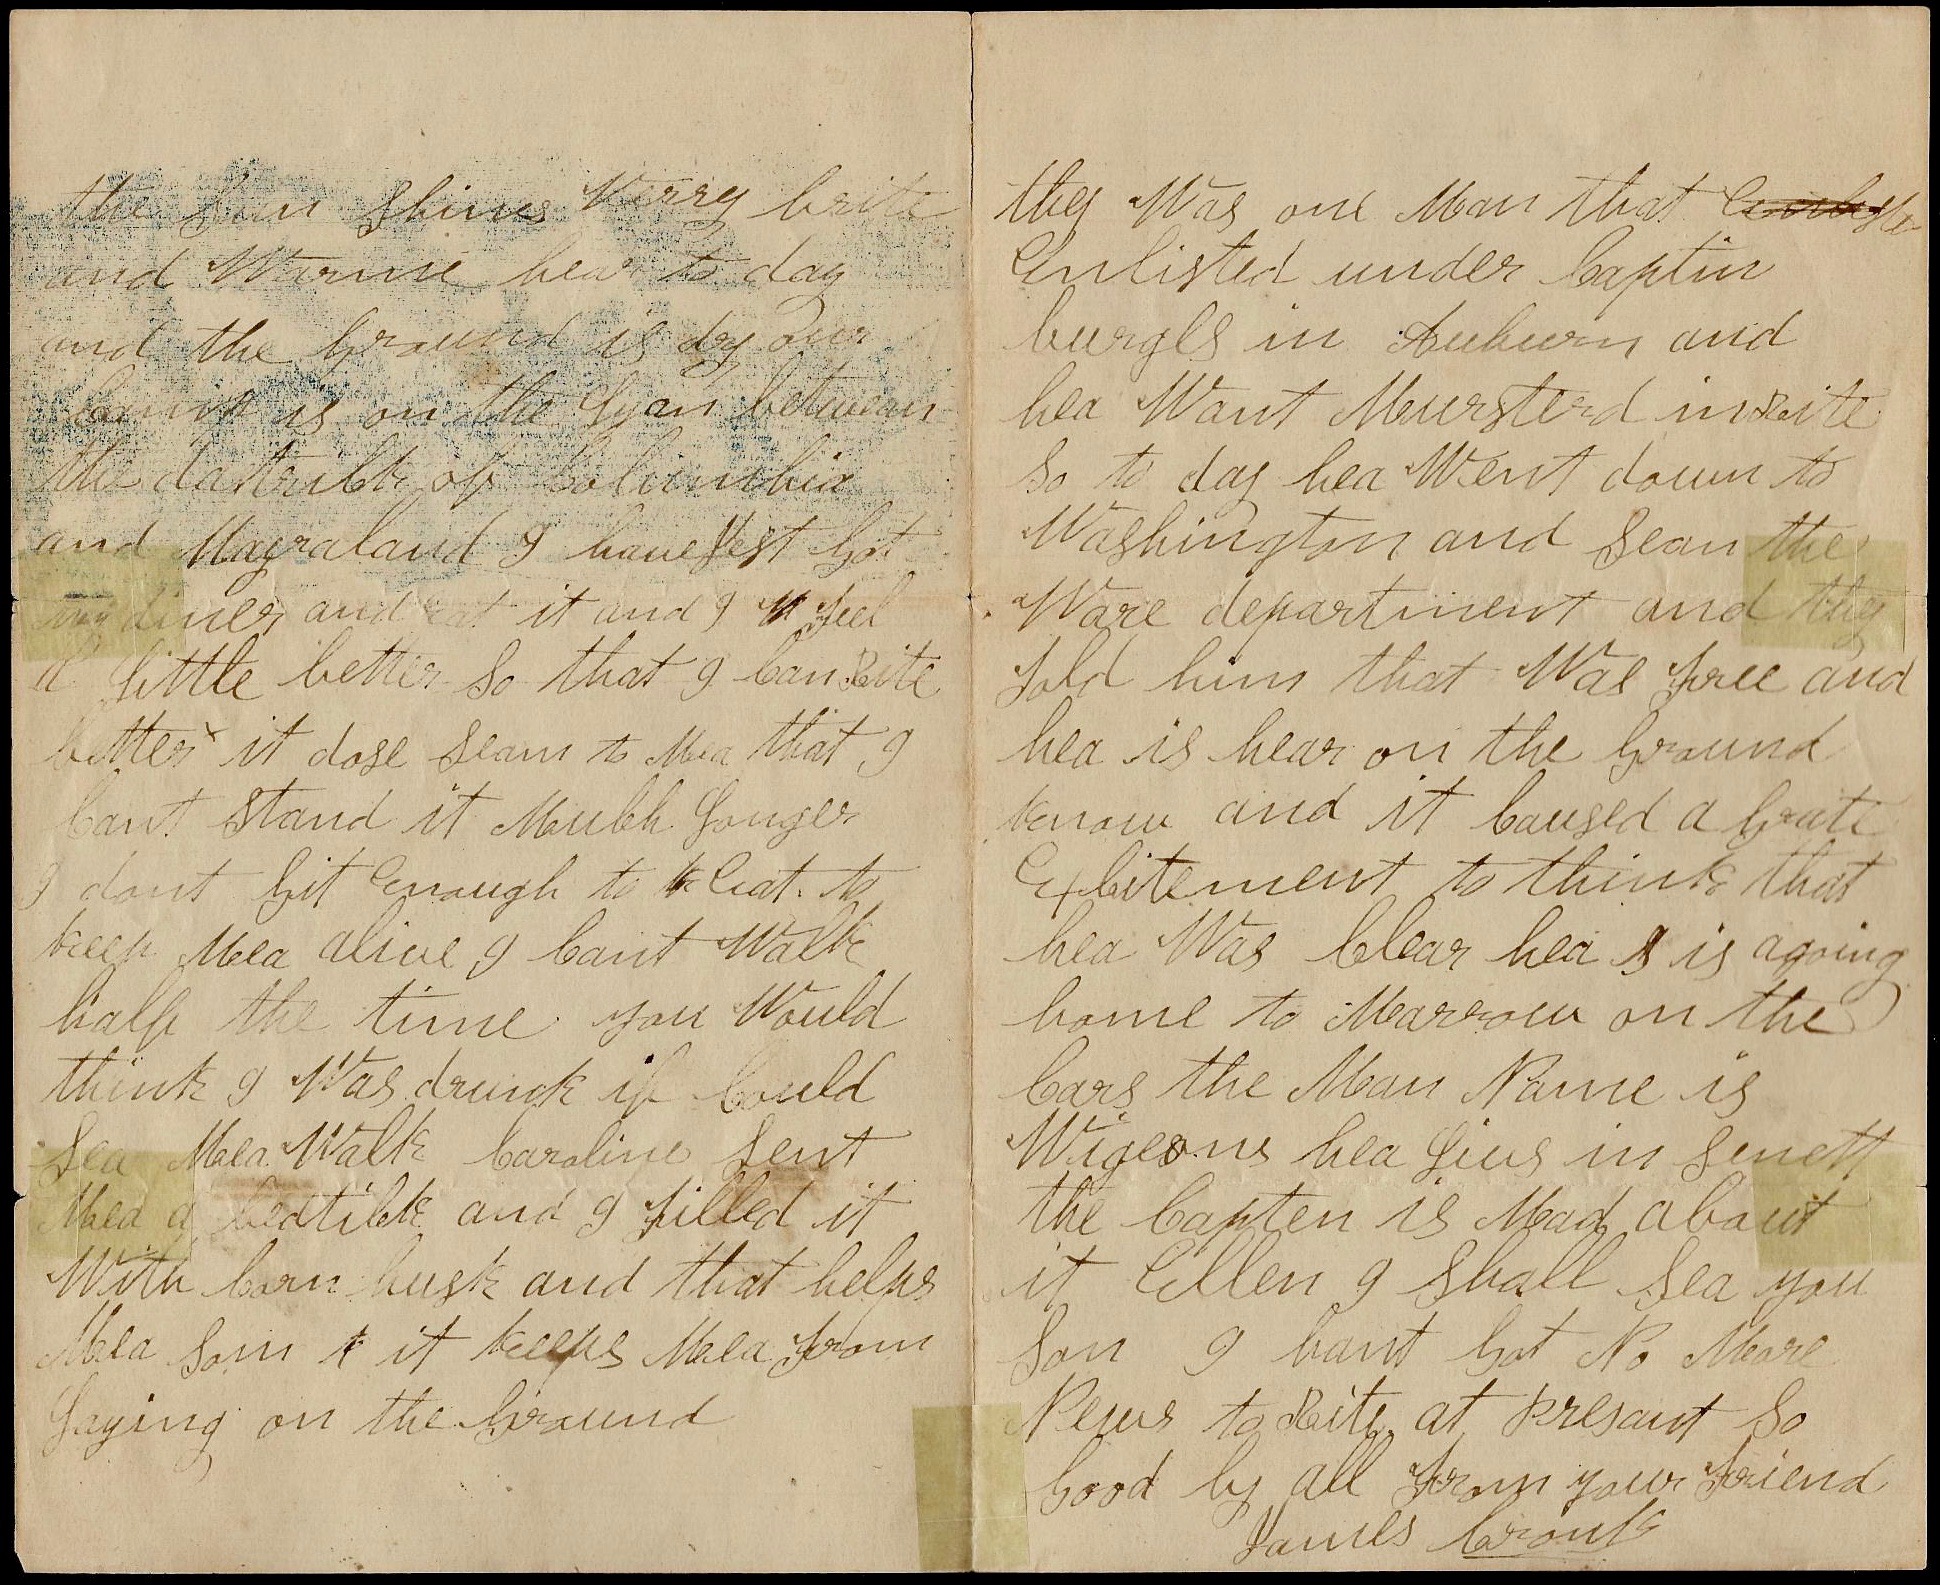 the Sun Shines Verry brite
and Warme hear to day
and the Ground is dry our
Camp is on the Lyan betwean
the dastrickt of Columbia
and Mayraland I have Jest Got
my diner and eat it and I feel
a little better So that I Can Rite
better it dose Seam to Mea that I
Cant Stand it Mutch Longer
I dont Git Enough to Eat to
keep Mea alive I Cant Walk
half the time you Would
think I Was drunk if Could
Sea Mea Walk Caroline Sent
Mea a bedtick and I filled it
With Corn husk and that helps
Mea Som it keeps Mea from
Laying on the Ground
they Was one Man that
Enlisted under Captin
burges in Auburn and
hea Want Mursterd in Rite
So to day hea Went down to
Washington and Sean the
Ware department and they
Told him that Was free and
hea is hear on the Ground
know and it Caused a Grate
Excitement to think that
hea Was Clear hea is agoing
home to Marrow on the
Cars the Man Name is
Wigeons hea Livs in Senett
the Capten is Mad about
it Ellen I Shall Sea you
Son I hant Got No More
News to Rite at Presant So
Good by all from your friend
James Cronk